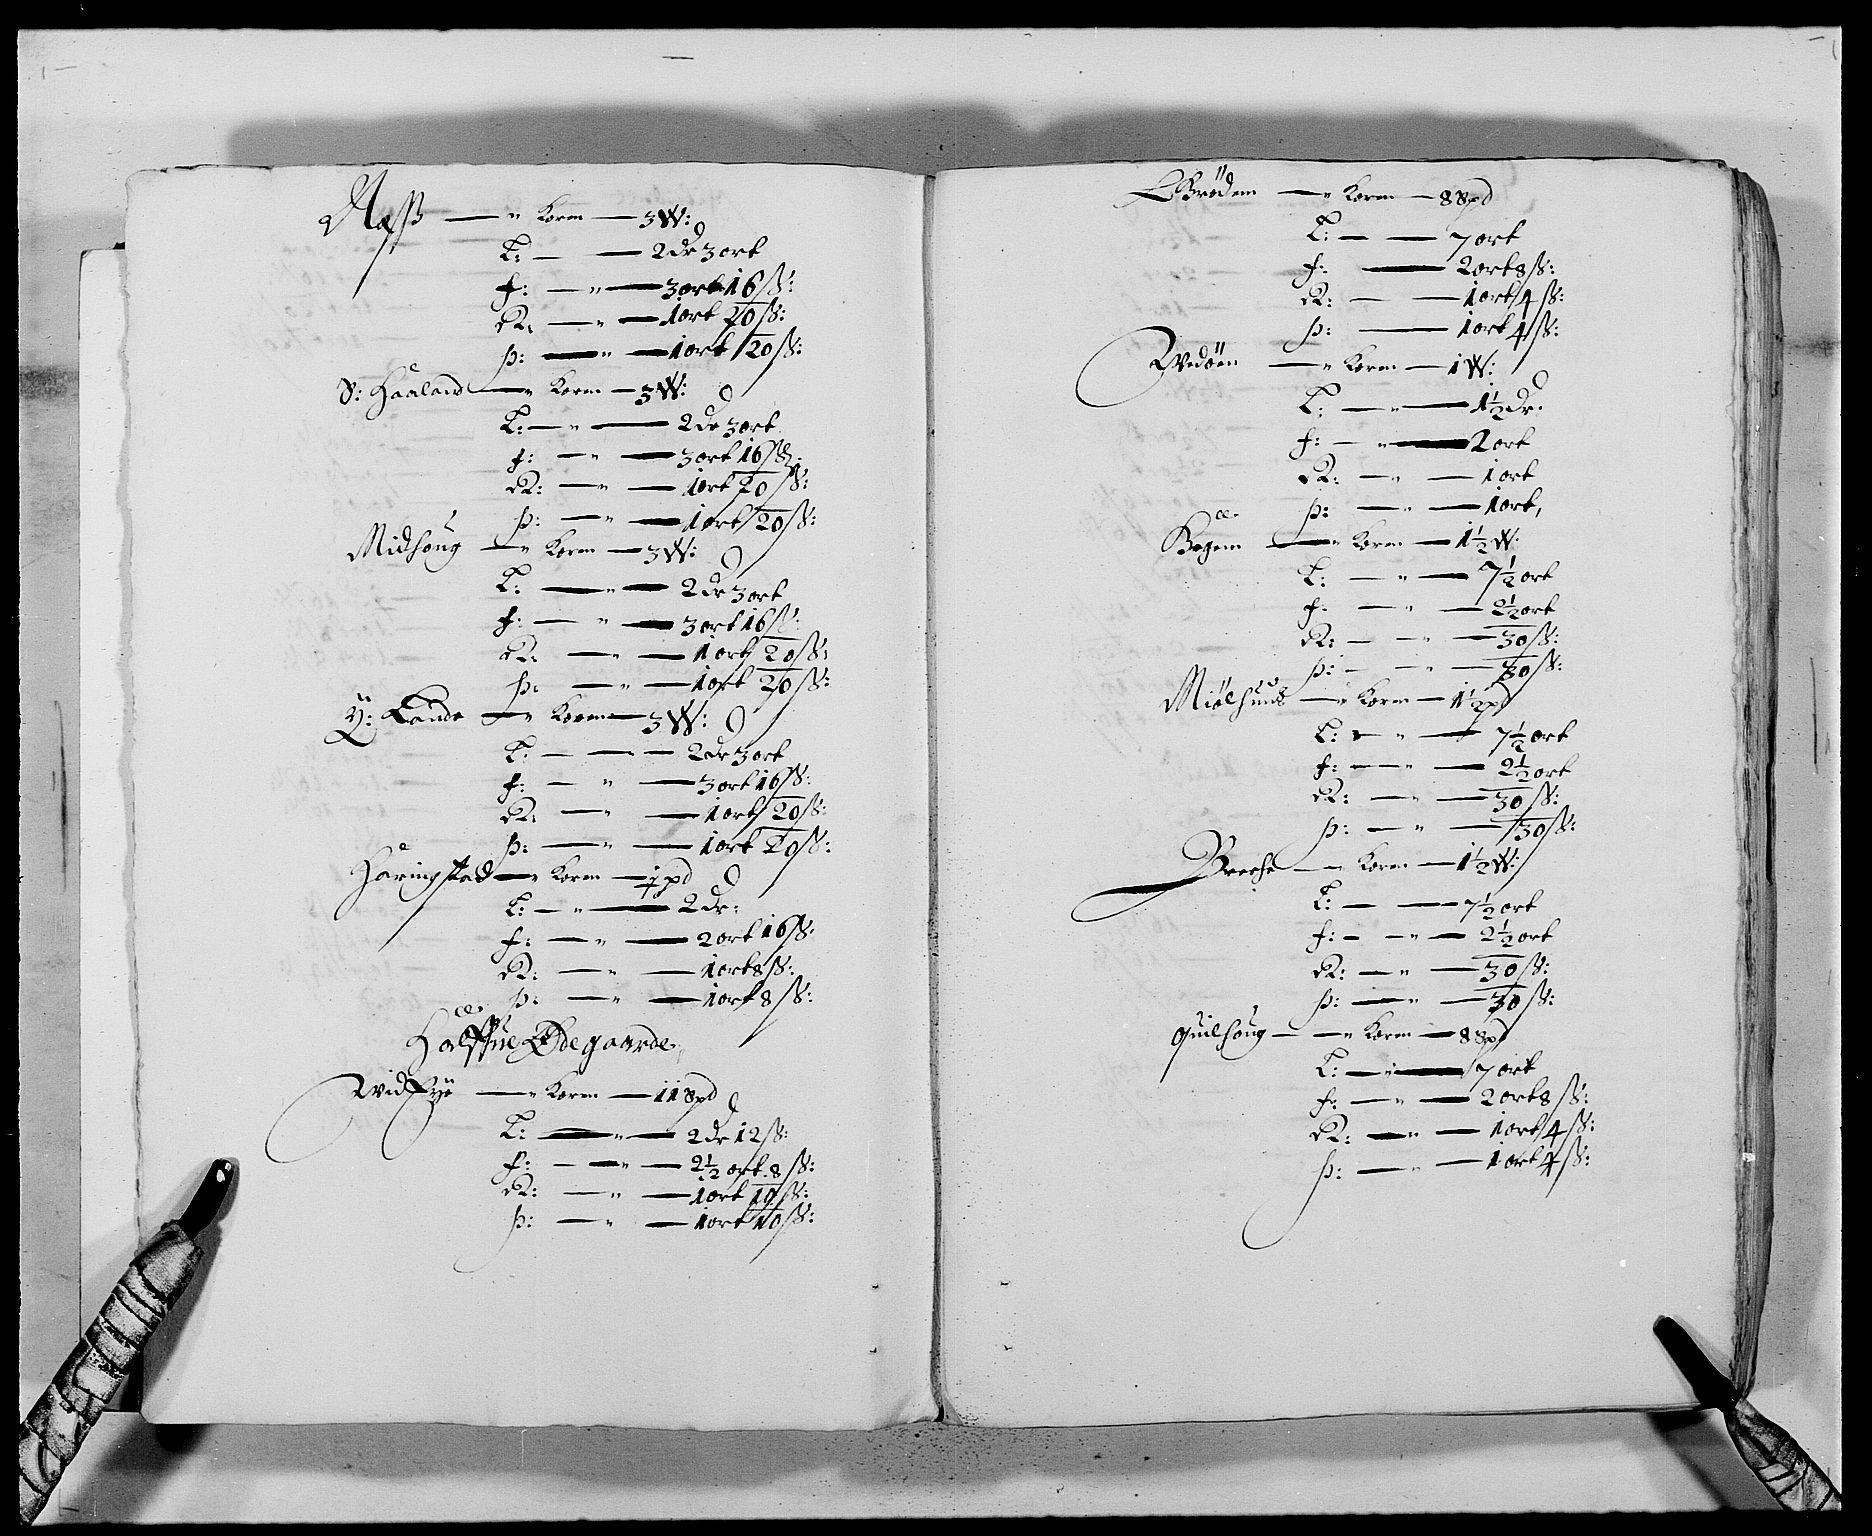 Næss — " Korn — 3 W:
L: — — 2 dr 3 ort
f: — " — 3 ort 16 ß:
R: — " — 1 ort 20 ß:
Þ: — " — 1 ort 20 ß:
S: Haaland — " Korn — 3 W:
L: — " — 2 dr 3 ort
f: — " — 3 ort 16 ß:
R: — " — 1 ort 20 ß:
Þ: — " — 1 ort 20 ß:
Midhoug — " Korn — 3 W:
L: — " — 2 dr 3 ort
f: — " — 3 ort 16 ß:
R: — " — 1 ort 20 ß:
Þ: — " — 1 ort 20 ß:
Y: Lande — " Korn — 3 W:
L: — " — 2 dr 3 ort
f: — " — 3 ort 16 ß:
R: — " — 1 ort 20 ß:
Þ: — " — 1 ort 20 ß:
Haringstad — " Korn — 1 pd
L: — " — 2 dr:
f: — " — 2 ort 16 ß:
R: — " — 1 ort 8 ß:
Þ: — " — 1 ort 8 ß:
Halffue Ødegaarde
Widsye — " Korn — 11 Spd
L: — " — 2 dr 12 ß:
f: — " — 2½ ort 8 ß:
R: — " — 1 ort 10 ß:
Þ: — " — 1 ort 10 ß:
Brödem — " Korn — 8 Spd
L: — — 7 ort
f: — 2 ort 8 ß:
R: — — 1 ort 4 ß:
Þ: — 1 ort 4 ß:
Wedöen — " Korn — 1 W:
L: — " — 1½ dr.
f: — " — 2 ort
R: — " — 1 ort
Þ: — " — 1 ort,
Bogem — " Korn — 1½ W:
L: — " — 7½ ort
f: — " — 2½ ort
R: — " — 30 ß:
Þ: — " — 30 ß:
Miölhuus — " Korn — 1½ pd
L: — " — 7½ ort
f: — " — 2½ ort
R: — " — 30 ß:
Þ: — " — 30 ß:
— " Korn — 1½ W:
L: — — 7½ ort
f: — " — 2½ ort
R: — " — 30 ß:
Þ: — " — 30 ß:
Quilhoug — " Korn — 8 Spd
L: — " — 7 ort
f: — " — 2 ort 8 ß:
R: — " — 1 ort 4 ß:
Þ: — " — 1 ort 4 ß: